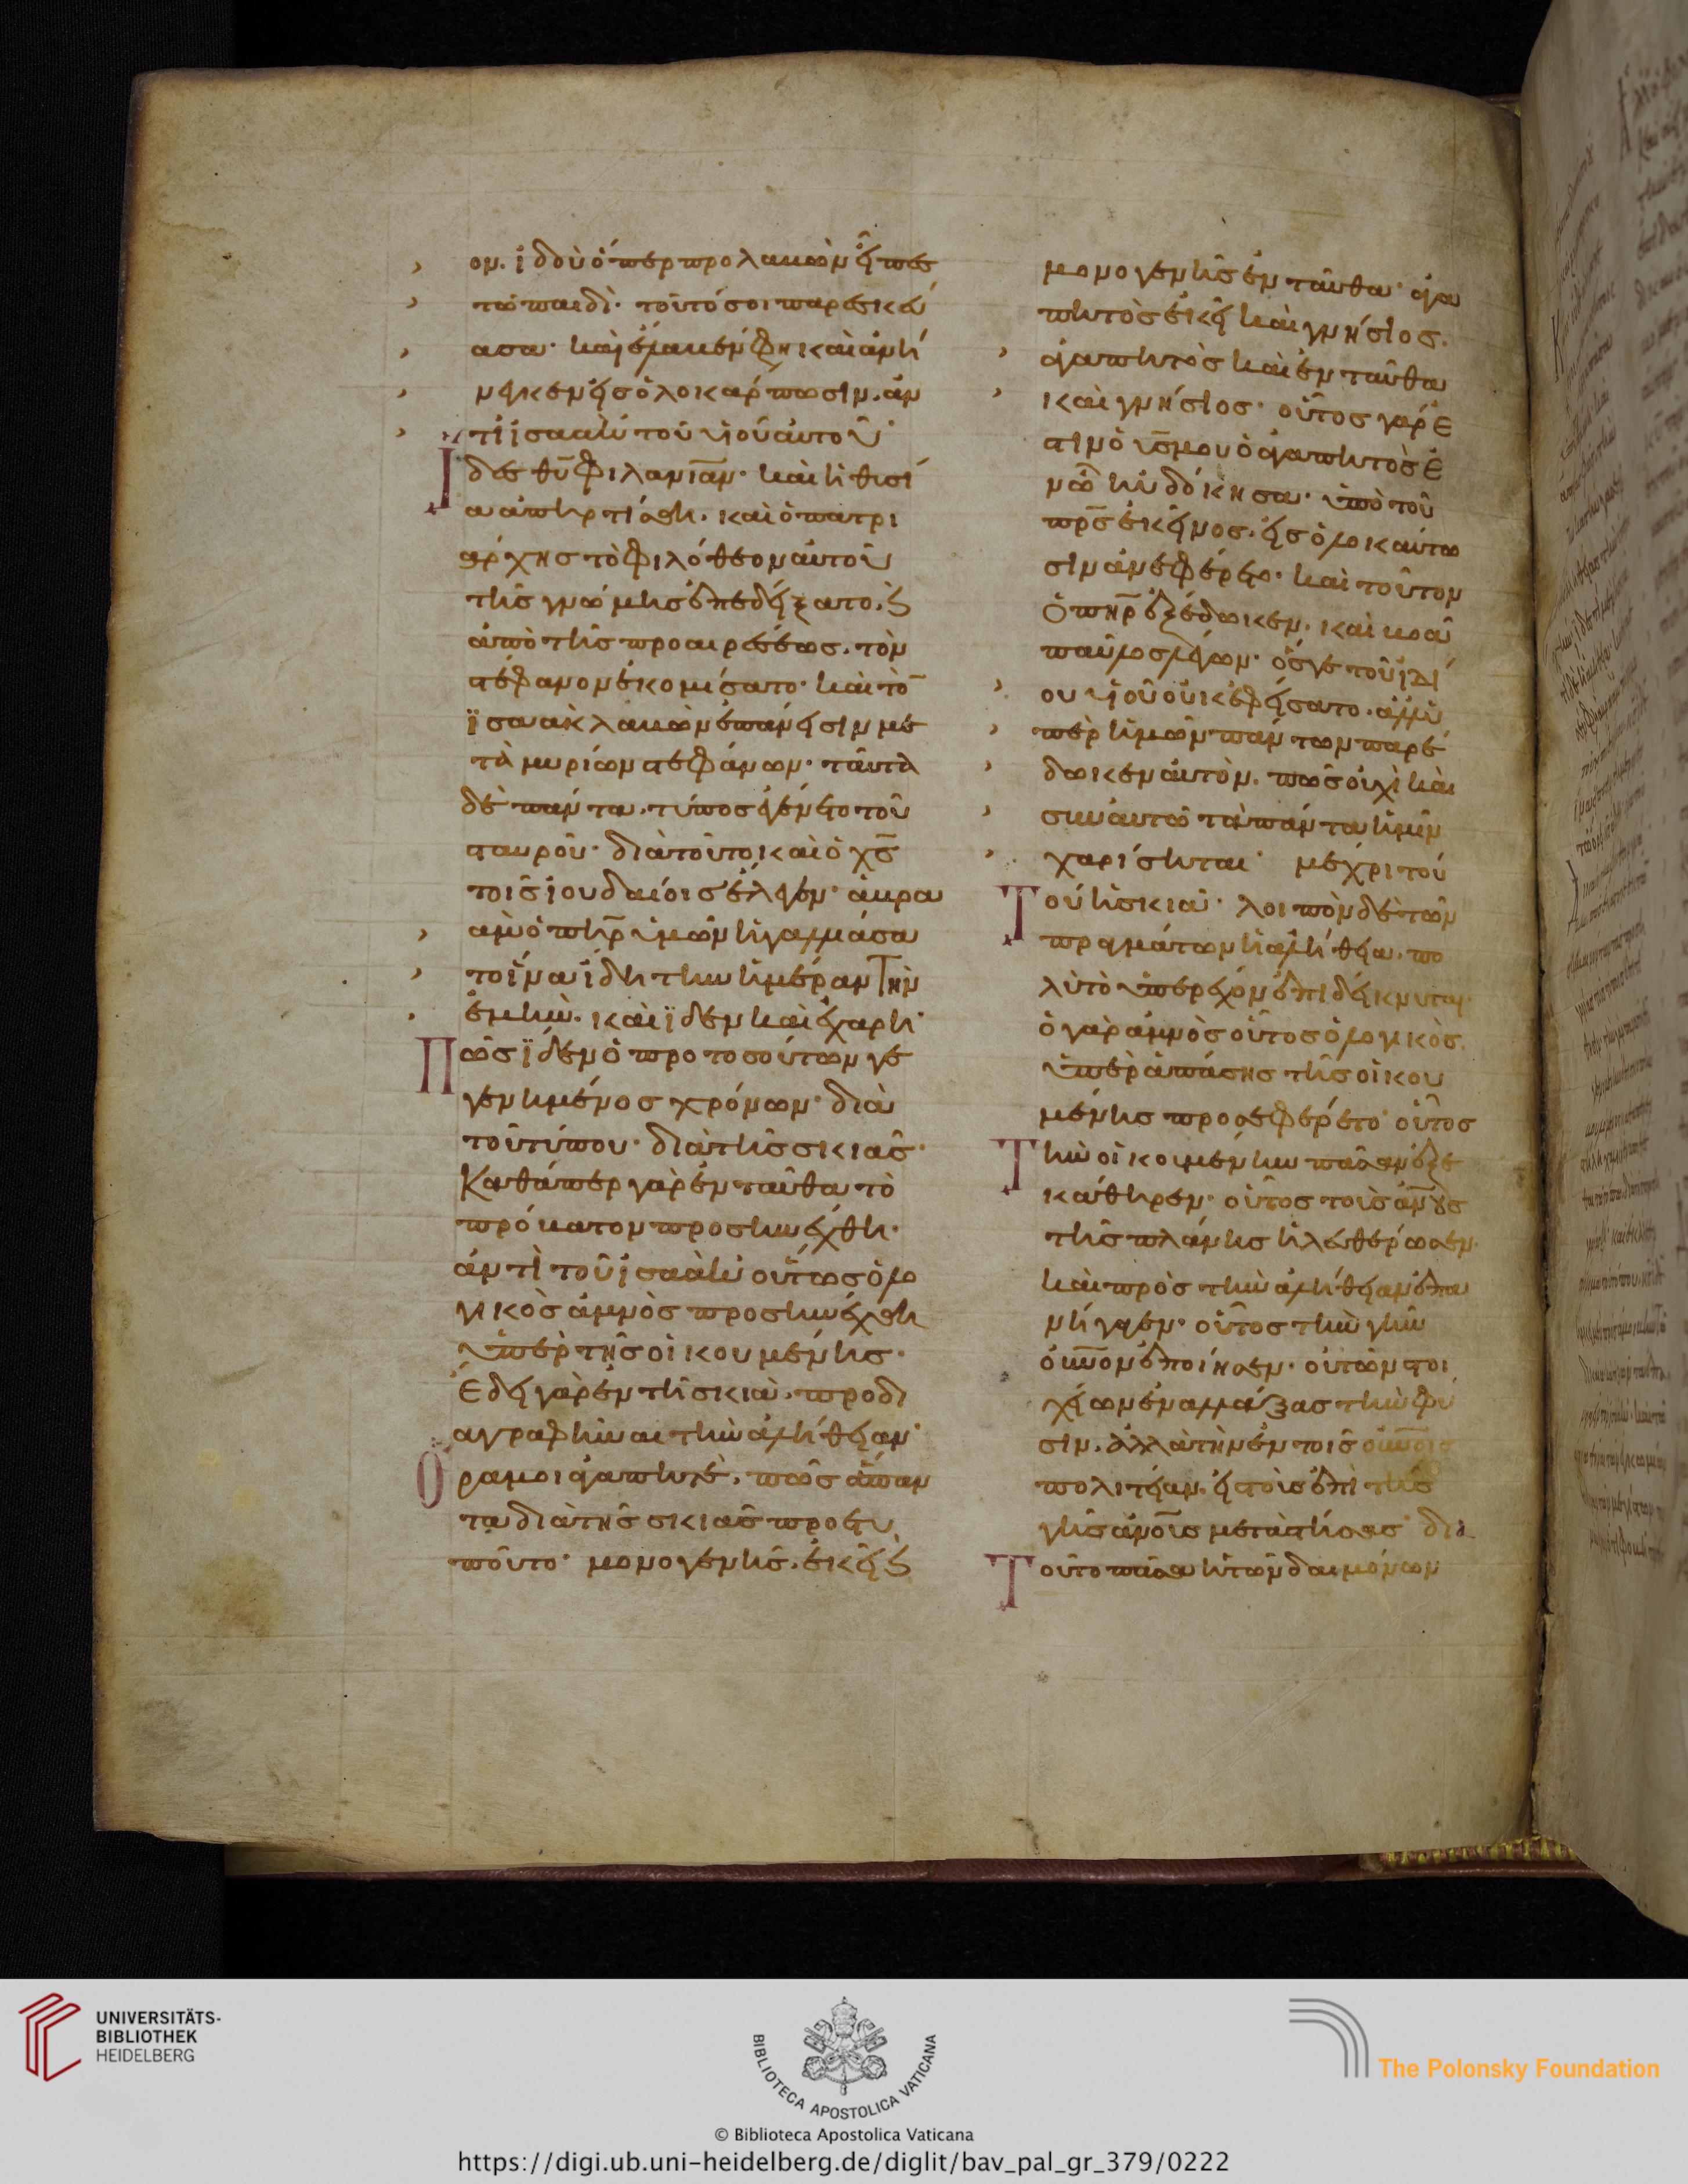 ον. ἰδοὺ ὅπερ προλαβὼν εἶπες
τῶ παιδὶ· τοῦτό σοι παρεσκεύ
ασα· καὶ ἔλαβέν φη καὶ ἀνή
νεγκεν εἰς ὁλοκάρπωσιν. ἀν
τὶ ἰσαὰκ τοῦ υἱοῦ αὐτοῦ·
Ἴδες θῦ φιλανιαν· καὶ ἡ θυσί
α ἀπηρτίσθη. καὶ ὁ πατρι
άρχης τὸ φιλόθεον αὐτοῦ
τῆς γνώμης ἐπεδείξατο. ϗ
ἀπὸ τῆς προαιρέσεως. τὸν
στέφανον ἐκομίσατο· καὶ τὸ
ϊσαὰκ λαβὼν ἐπάνεισιν με
τὰ μυρίων στεφάνων· ταῦτα
δὲ πάντα. τύπος ἐγένετο τοῦ
σταυροῦ· διὰ τοῦτο καὶ ὁ χς
τοῖς ἰουδαίοις ἔλεγεν· ἀβρα
ὰμ ὁ πηρ ὑμῶν ἠγαλλιάσα
το ἵνα ἴδη τὴν ἡμέραν τὴν
ἐμὴν. καὶ ϊδεν καὶ ἐχάρη·
Πῶς ϊδεν ὁ πρὸ τοσούτων γε
γενημένος χρόνων· διὰ
τοῦ τύπου· διὰ τῆς σκιᾶς·
Καθάπερ γὰρ ἐνταῦθα τὸ
πρόβατον προσηνέχθη·
ἀντὶ τοῦ ἰσαὰκ οὕτως ὁ λο
γικὸς ἀμνὸς προσηνέχθη
ὑπὲρ τῆς οἰκουμένης·
Ἔδει γὰρ ἐν τῆ σκιᾶ. προδι
αγραφῆναι τὴν ἀλήθειαν·
Ὅρα μοι ἀγαπητὲ. πῶς ἅπαν
τα διὰ τῆς σκιᾶς προετυ
ποῦντο· μονογενὴς. ἐκεῖ ϗ
μονογενὴς ἐνταῦθα· ἀγα
πητὸς ἐκεῖ καὶ γνήσιος.
ἀγαπητὸς καὶ ἐνταῦθα
καὶ γνήσιος· οὗτος γάρ ἐ
στιν ὁ υς μου ὁ ἀγαπητὸς ἐ
ν ὧ ηὐδόκησα· ὑπὸ τοῦ
πρς ἐκεῖνος. εἰς ὁλοκαύτω
σιν ἀνεφέρετο· καὶ τοῦτον
ὁ πηρ ἐξέδωκεν. καὶ βοᾶ
παῦλος λέγων· ὅς γε τοῦ ἰδί
ου υἱοῦ οὐκ ἐφείσατο. ἀλλ' ὑ
πὲρ ἡμῶν πάντων παρέ
δωκεν αὐτὸν. πῶς οὐχὶ καὶ
σὺν αὐτῶ τὰ πάντα ἡμῖν
χαρίσηται· μέχρι τού
Του ἡ σκιά· λοιπὸν δὲ τῶν
πραγμάτων ἡ ἀλήθεια. πο
λὺ τὸ ὑπερέχον ἐπιδείκνυται·
ὁ γὰρ ἀμνὸς οὗτος ὁ λογικὸς.
ὑπὲρ ἁπάσης τῆς οἰκου
μένης προσεφέρετο· οὗτος
Τὴν οἰκουμένην πᾶσαν ἐξε
κάθηρεν· οὗτος τοὺς ἀνους
τῆς πλάνης ἠλευθέρωσεν·
καὶ πρὸς τὴν ἀλήθειαν ἐπα
νήγαγεν· οὗτος τὴν γῆν
οὐνον ἐποίησεν· οὐ τῶν στοι
χείων ἐναλλάξας τὴν φύ
σιν. ἀλλὰ τὴν ἐν τοῖς οὐνοῖς
πολιτείαν. εἰς τοὺς ἐπὶ τῆς
γῆς ἀνους μεταστήσας· διὰ
Τοῦτο πᾶσα ἡ τῶν δαιμόνων
UNIVERSITÄTS-
BIBLIOTHEK
HEIDELBERG
BIBLIOTECA APOSTOLICA VATICANA
The Polonsky Foundation
© Biblioteca Apostolica Vaticana
https://digi.ub.uni-heidelberg.de/diglit/bav_pal_gr_379/0222